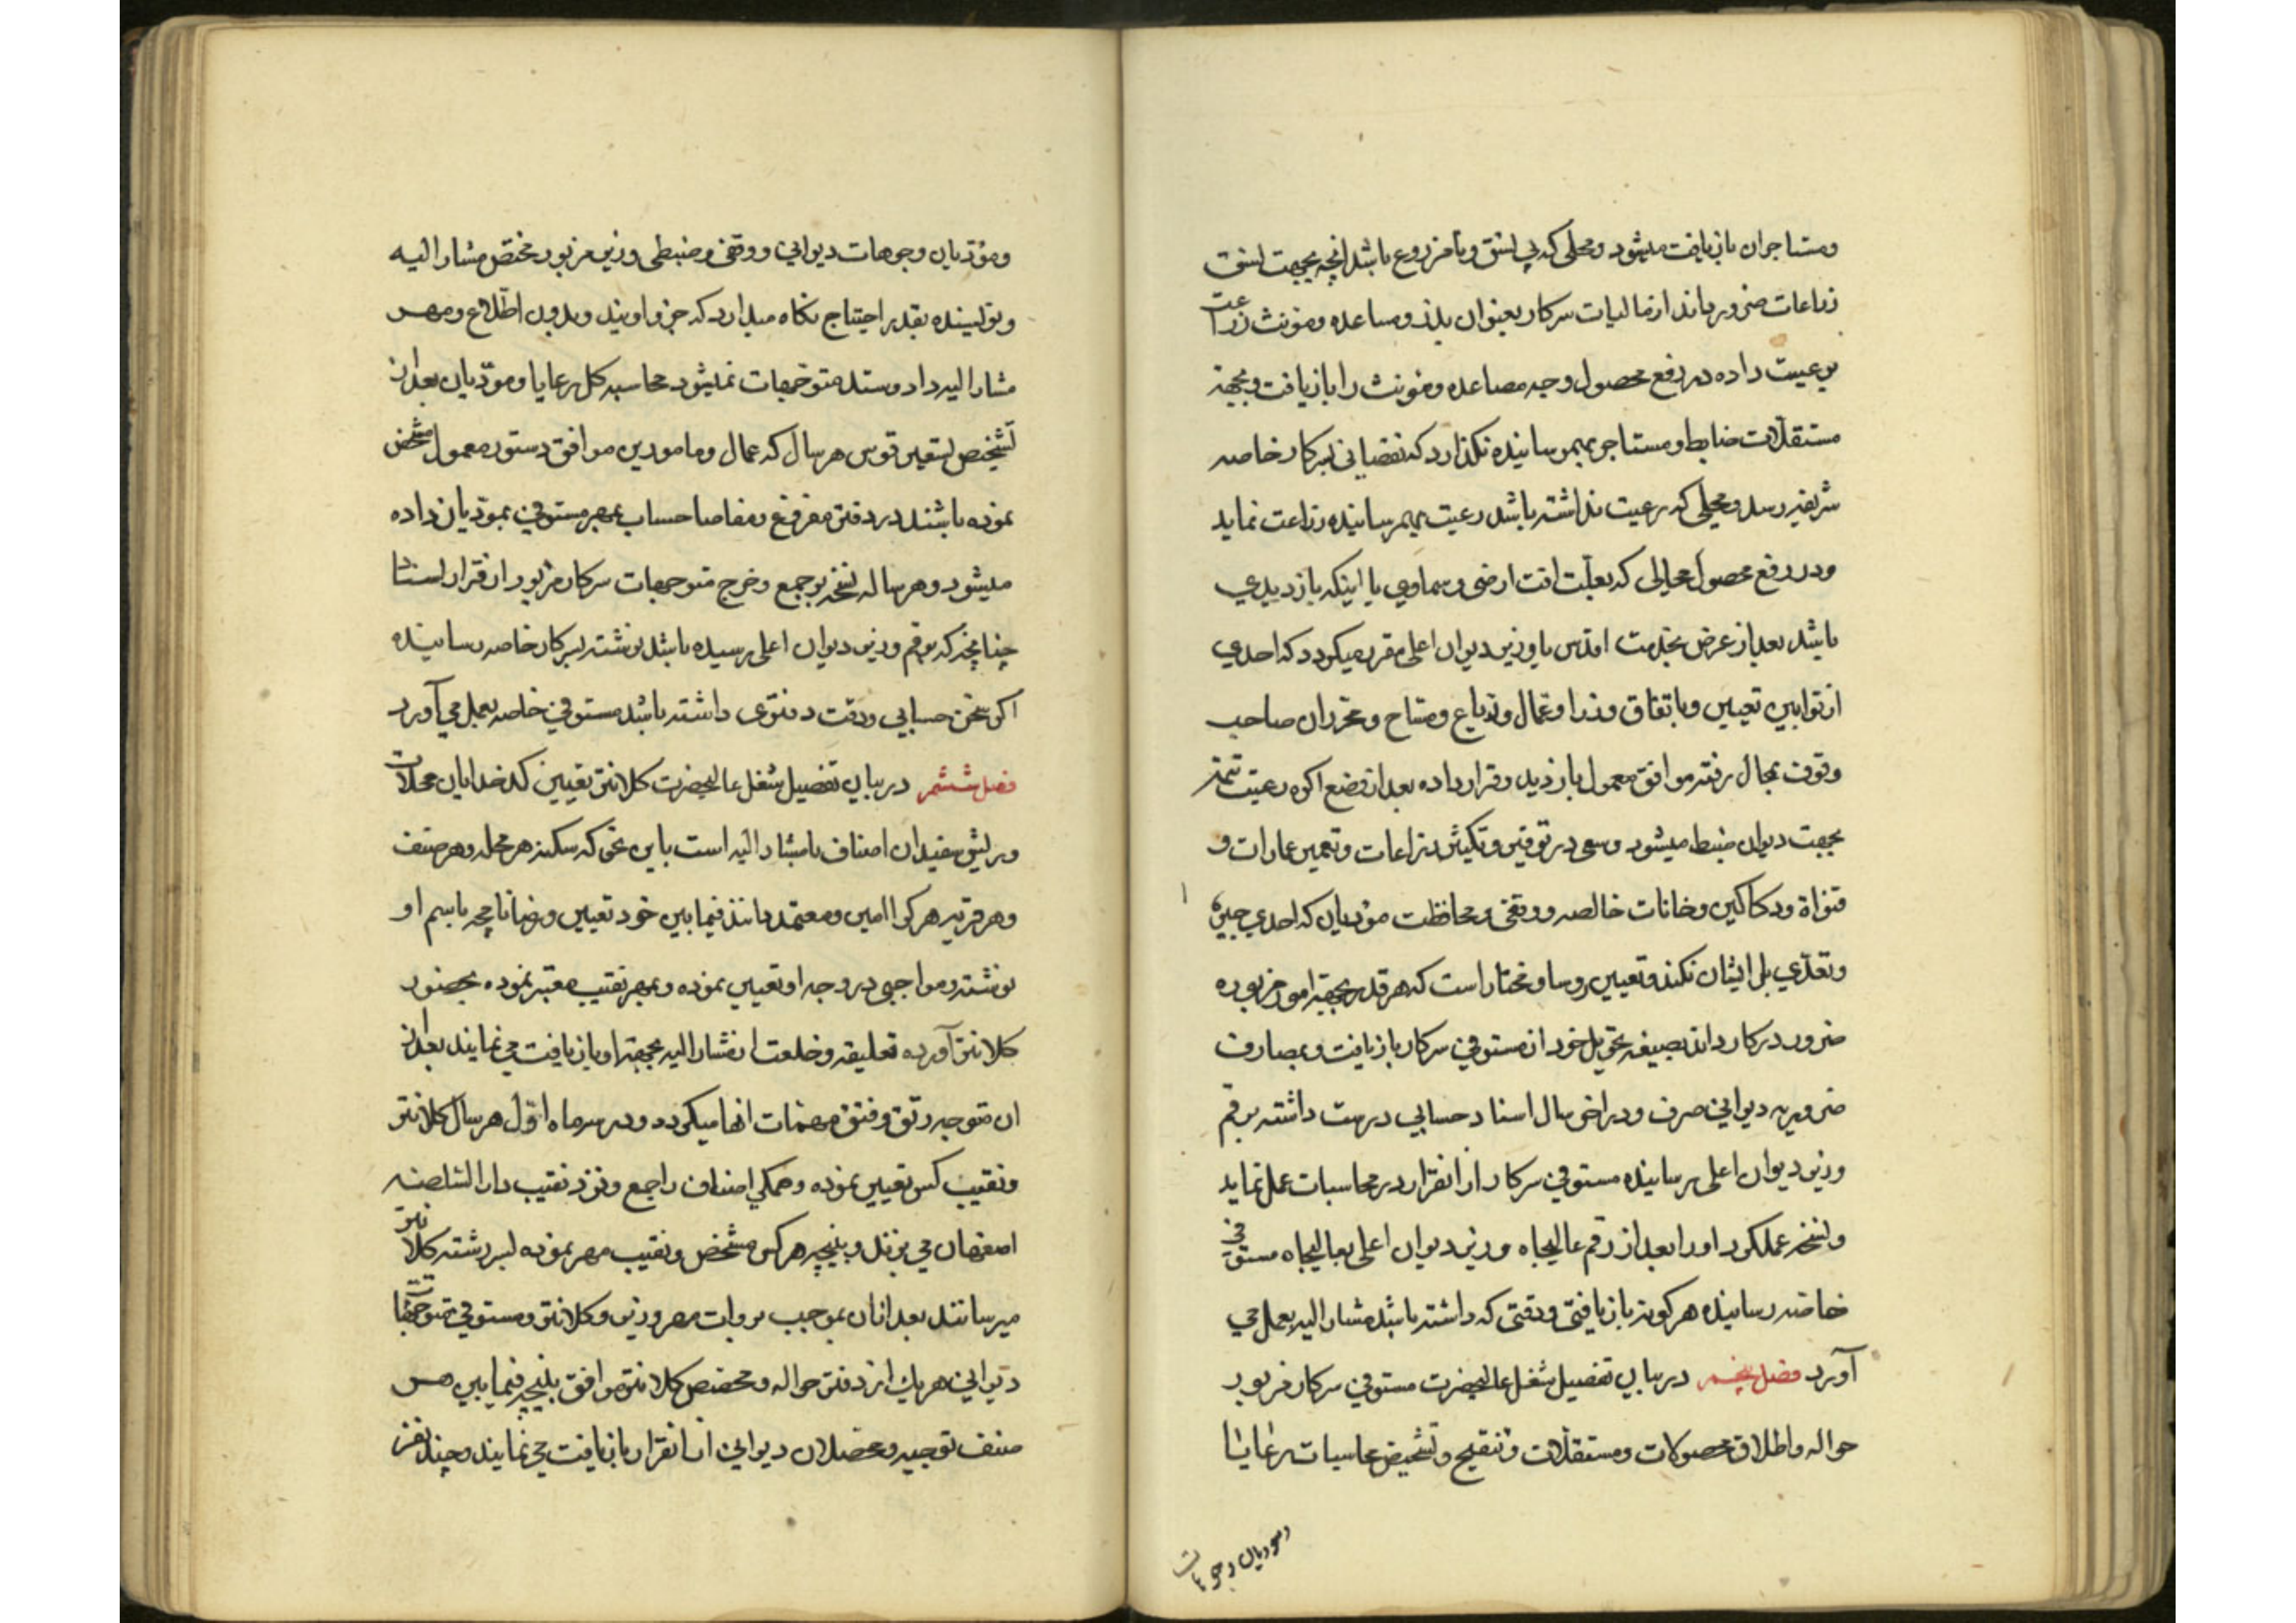 ومستاجران بازیافت میشود و محلی که بی نسق و نامزروع باشد انچه بجهت نسق
زراعات ضرور باشد از مالیات سرکار بعنوان بذر و مساعده و مؤنت زراعت
برعیت داده در رفع محصول وجه مصاعده و مؤنت را بازیافت و بجهة
مستقلات ضابط و مستاجر بهمرسانیده نکذارد که نقصانی بسرکار خاصه
شریفه رسد و محلی که رعیت نداشته باشد رعیت بهمرسانیده زراعت نماید
و در رفع محصول محالی که بعلت افت ارضی و سماوی یا اینکه بازدیدی
باشد بعد از عرض بخدمت اقدس یا وزیر دیوان اعلی مقرر میکردد که احدی
از توابین تعیین و باتفاق وزرا و عمال و ذراع و مساح و محرران صاحب
وقوف بمحال رفته موافق معمول بازدید و قرارداده بعد از وضع اکره رعیت تتمه
بجهت دیوان ضبط میشود و سعی در توفیر و تکثیر زراعات و تعمیر عمارات و
قنواة و دکاکین و خانات خالصه و وقفی و محافظت مؤدیان که احدی جبر
و تعدی بل ایشان نکند و تعیین روسا و مختار است که هر قدر بجهة امور مزبوره
ضرور در کار داند بصیغه تحویل خود از مستوفی سرکار بازیافت و بمصارف
ضروریه دیوانی صرف و در اخر سال اسناد حسابی درست داشته برقم
وزیر دیوان اعلی رسانیده مستوفی سرکار از انقرار در محاسبات عمل نماید
و نسخه عملکرد او را بعد از رقم عالیجاه وزیر دیوان اعلی بعالیجاه مستوفی
خاصه رسانیده هر کونه بازیافتی و دقتی که داشته باشد مشار الیه بعمل می
آورد فصل پنجم در بیان تفصیل شغل عالیحضرت مستوفی سرکار مزبور
حواله و اطلاق محصولات و مستقلات و تنقیح و تشخیص محاسبات رعایا
و مودیان وجوهات
و مؤدیان وجوهات دیوانی و وقفی و ضبطی وزیر مزبور مختص مشار الیه
و نویسنده بقدر احتیاج نکاه میدارد که جزو اویند و بدون اطلاع و مهر
مشار الیه داد و ستد متوجهات نمیشود محاسبه کل رعایا و مؤدیان بعد از
تشخیص تسعیر قوس هر سال که عمال و مامورین موافق دستور معمول مشخص
نموده باشند در دفتر مفروغ و مفاصا حساب بمهر مستوفی بمودیان داده
میشود و هر ساله نسخه بر جمع و خرج متوجهات سرکار مزبور از قرار اسناد
چنانچه که برقم وزیر دیوان اعلی رسیده باشد نوشته بسرکار خاصه رسانیده
اکر سخن حسابی و دقت دفتری داشته باشد مستوفی خاصه بعمل می آورد
فصل ششم در بیان تفصیل شغل عالیحضرت کلانتر تعیین کدخدایان محلات
و ریش سفیدان اصناف با مشار الیه است باین نحو که سکنه هر محله و هر صنف
و هر قریه هر کرا امین و معتمد دانند فیمابین خود تعیین و رضانامچه باسم او
نوشته و مواجبی در وجه او تعیین نموده و بمهر نقیب معتبر نموده بحضور
کلانتر آورده تعلیقه و خلعت از مشار الیه بجهة او بازیافت می نمایند بعد از
ان متوجه رتق و فتق مهمات انها میکردد و در سه ماه اول هر سال کلانتر
و نقیب کس تعیین نموده و همکی اصناف را جمع و نزد نقیب دار السلطنه
اصفهان می برند و بنیچه هر کس مشخص و نقیب مهر نموده بسررشته کلانتر
میرسانند بعد از ان بموجب بروات مهر وزیر و کلانتر و مستوفی متوجهات
دیوانی هر یک از دفتر حواله و محصص کلانتر موافق بنیچه فیمابین هر
صنف توجیه و محصلان دیوانی از انقرار بازیافت می نمایند و چند نفر